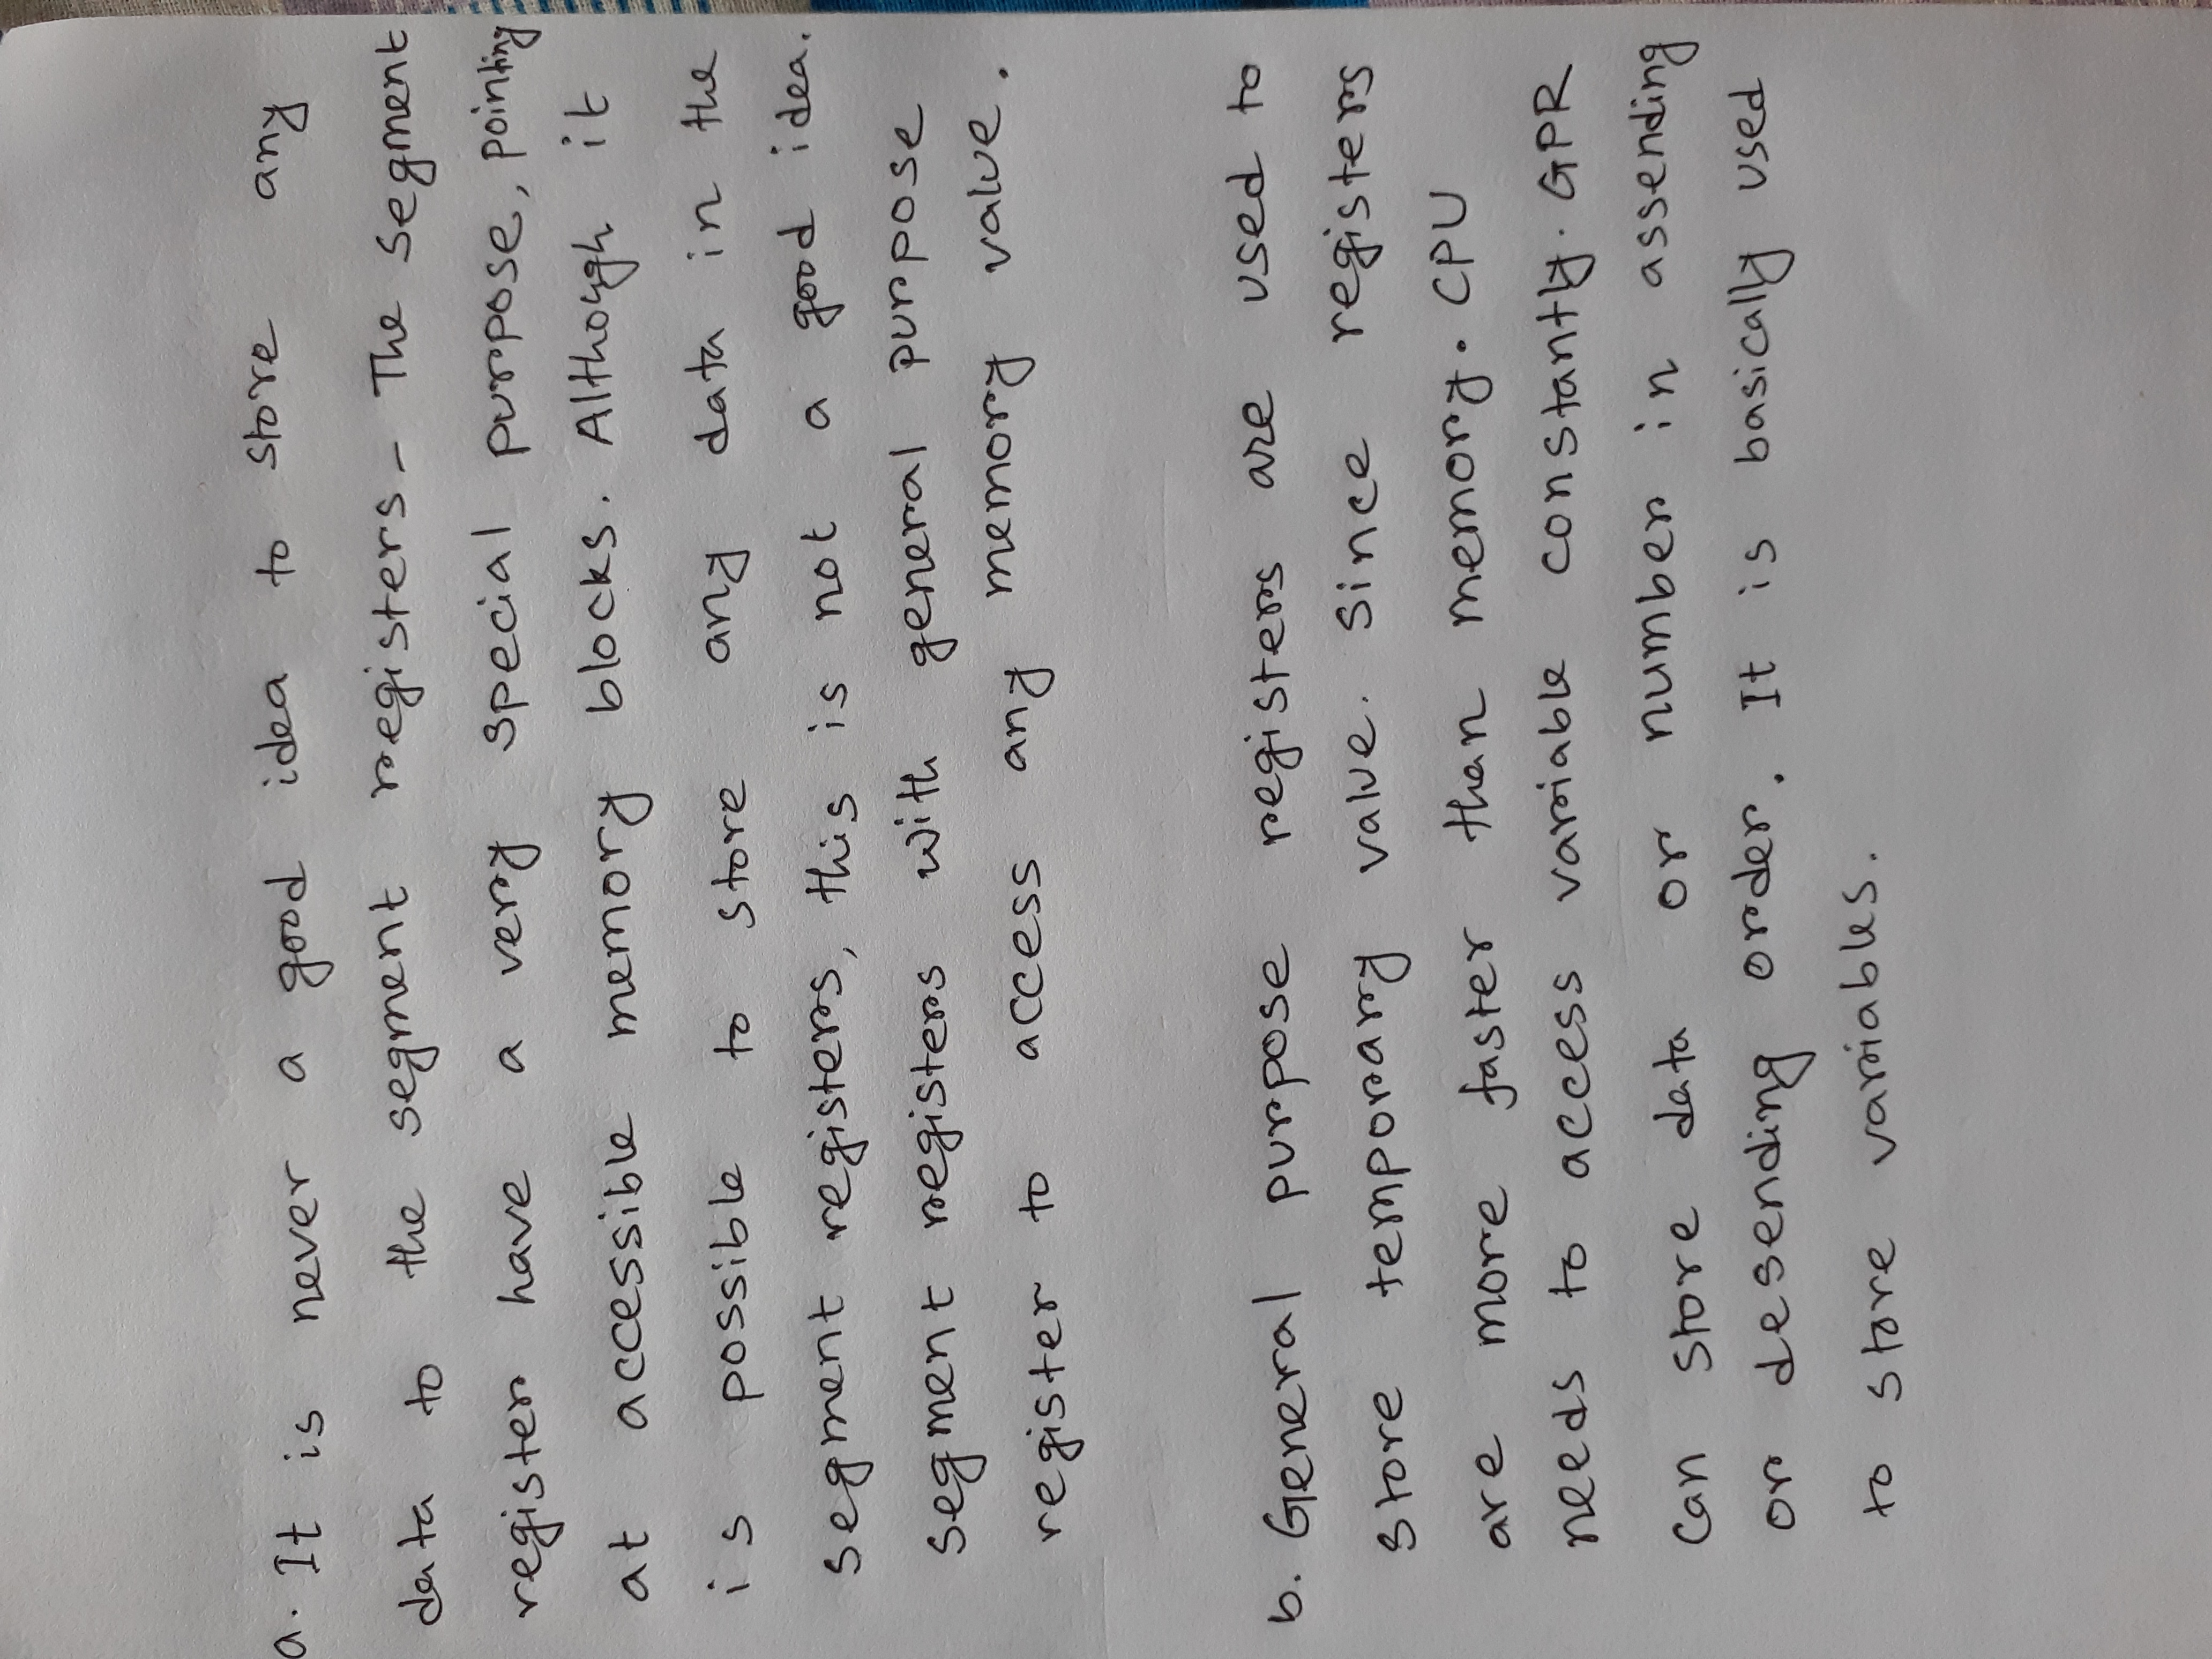 a. It is never a good idea to store any
data to the segment registers - The segment
register have a very special purpose, pointing
at accessible memory blocks. Although it
is possible to store any data in the
segment registers, this is not a good idea.
segment registers with general purpose
register to access any memory value.
b. General purpose registers are used to
store temporary value. Since registers
are more faster than memory. CPU
needs to access variable constantly. GPR
can store data or number in assending
or desending order. It is basically used
to store variables.